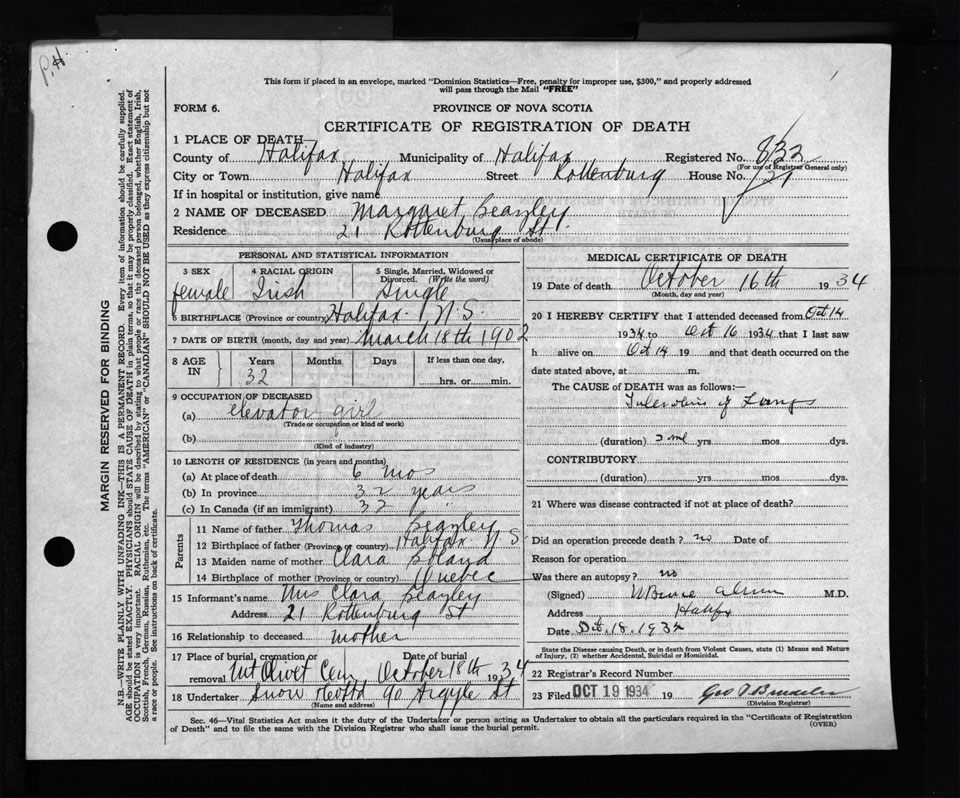 P.H.
This form if placed in an envelope, marked "Dominion Statistics—Free, penalty for improper use, $300," and properly addressed
will pass through the Mail "FREE"
FORM 6. PROVINCE OF NOVA SCOTIA
CERTIFICATE OF REGISTRATION OF DEATH
1 PLACE OF DEATH—
County of Halifax Municipality of Halifax Registered No. 832
(For use of Registrar General only)
City or Town Halifax Street Rottenburg House No. 21
If in hospital or institution, give name
2 NAME OF DECEASED Margaret Beazley
Residence 21 Rottenburg St.
(Usual place of abode)
PERSONAL AND STATISTICAL INFORMATION
3 SEX 4 RACIAL ORIGIN 5 Single, Married, Widowed or Divorced. (Write the word)
female Irish Single
6 BIRTHPLACE (Province or country) Halifax N.S.
7 DATE OF BIRTH (month, day and year) March 18th 1902
8 AGE IN Years Months Days If less than one day,
32 hrs. or min.
9 OCCUPATION OF DECEASED
(a) elevator girl
(Trade or occupation or kind of work)
(b)
(Kind of industry)
10 LENGTH OF RESIDENCE (in years and months)
(a) At place of death 6 mos
(b) In province 32 years
(c) In Canada (if an immigrant) 32 "
Parents
11 Name of father Thomas Beazley
12 Birthplace of father (Province or country) Halifax N S
13 Maiden name of mother Clara Boland
14 Birthplace of mother (Province or country) Quebec
15 Informant's name Mrs Clara Beazley
Address 21 Rottenburg St
16 Relationship to deceased mother
17 Place of burial, cremation or removal Date of burial
Mt Olivet Cem October 18th 1934
18 Undertaker Snow 90 Argyle St
(Name and address)
MEDICAL CERTIFICATE OF DEATH
19 Date of death October 16th 1934
(Month, day and year)
20 I HEREBY CERTIFY that I attended deceased from Oct 14
1934 to Oct 16 1934 that I last saw
h alive on Oct 14 19 and that death occurred on the
date stated above, at m.
The CAUSE of DEATH was as follows:—
of Lungs
(duration) yrs. mos. dys.
CONTRIBUTORY
(duration) yrs. mos. dys.
21 Where was disease contracted if not at place of death?
Did an operation precede death? no Date of
Reason for operation
Was there an autopsy? no
(Signed) M.D.
Address Halifx
Date Oct. 18. 1932
State the Disease causing Death, or in death from Violent Causes, state (1) Means and Nature
of Injury, (2) whether Accidental, Suicidal or Homicidal.
22 Registrar's Record Number
23 Filed OCT 19 1934 19
(Division Registrar)
Sec. 46—Vital Statistics Act makes it the duty of the Undertaker or person acting as Undertaker to obtain all the particulars required in the "Certificate of Registration
of Death" and to file the same with the Division Registrar who shall issue the burial permit. (OVER)
MARGIN RESERVED FOR BINDING
N.B.—WRITE PLAINLY WITH UNFADING INK—THIS IS A PERMANENT RECORD. Every item of information should be carefully supplied.
AGE should be stated EXACTLY. PHYSICIANS should STATE CAUSE OF DEATH in plain terms, so that it may be properly classified. Exact statement of
OCCUPATION is very important. RACIAL ORIGIN will be described by stating to what people or race the deceased person belonged, whether English, Irish,
Scottish, French, German, Russian, Ruthenian, etc. The terms "AMERICAN" or "CANADIAN" SHOULD NOT BE USED as they express citizenship but not
a race or people. See instructions on back of certificate.